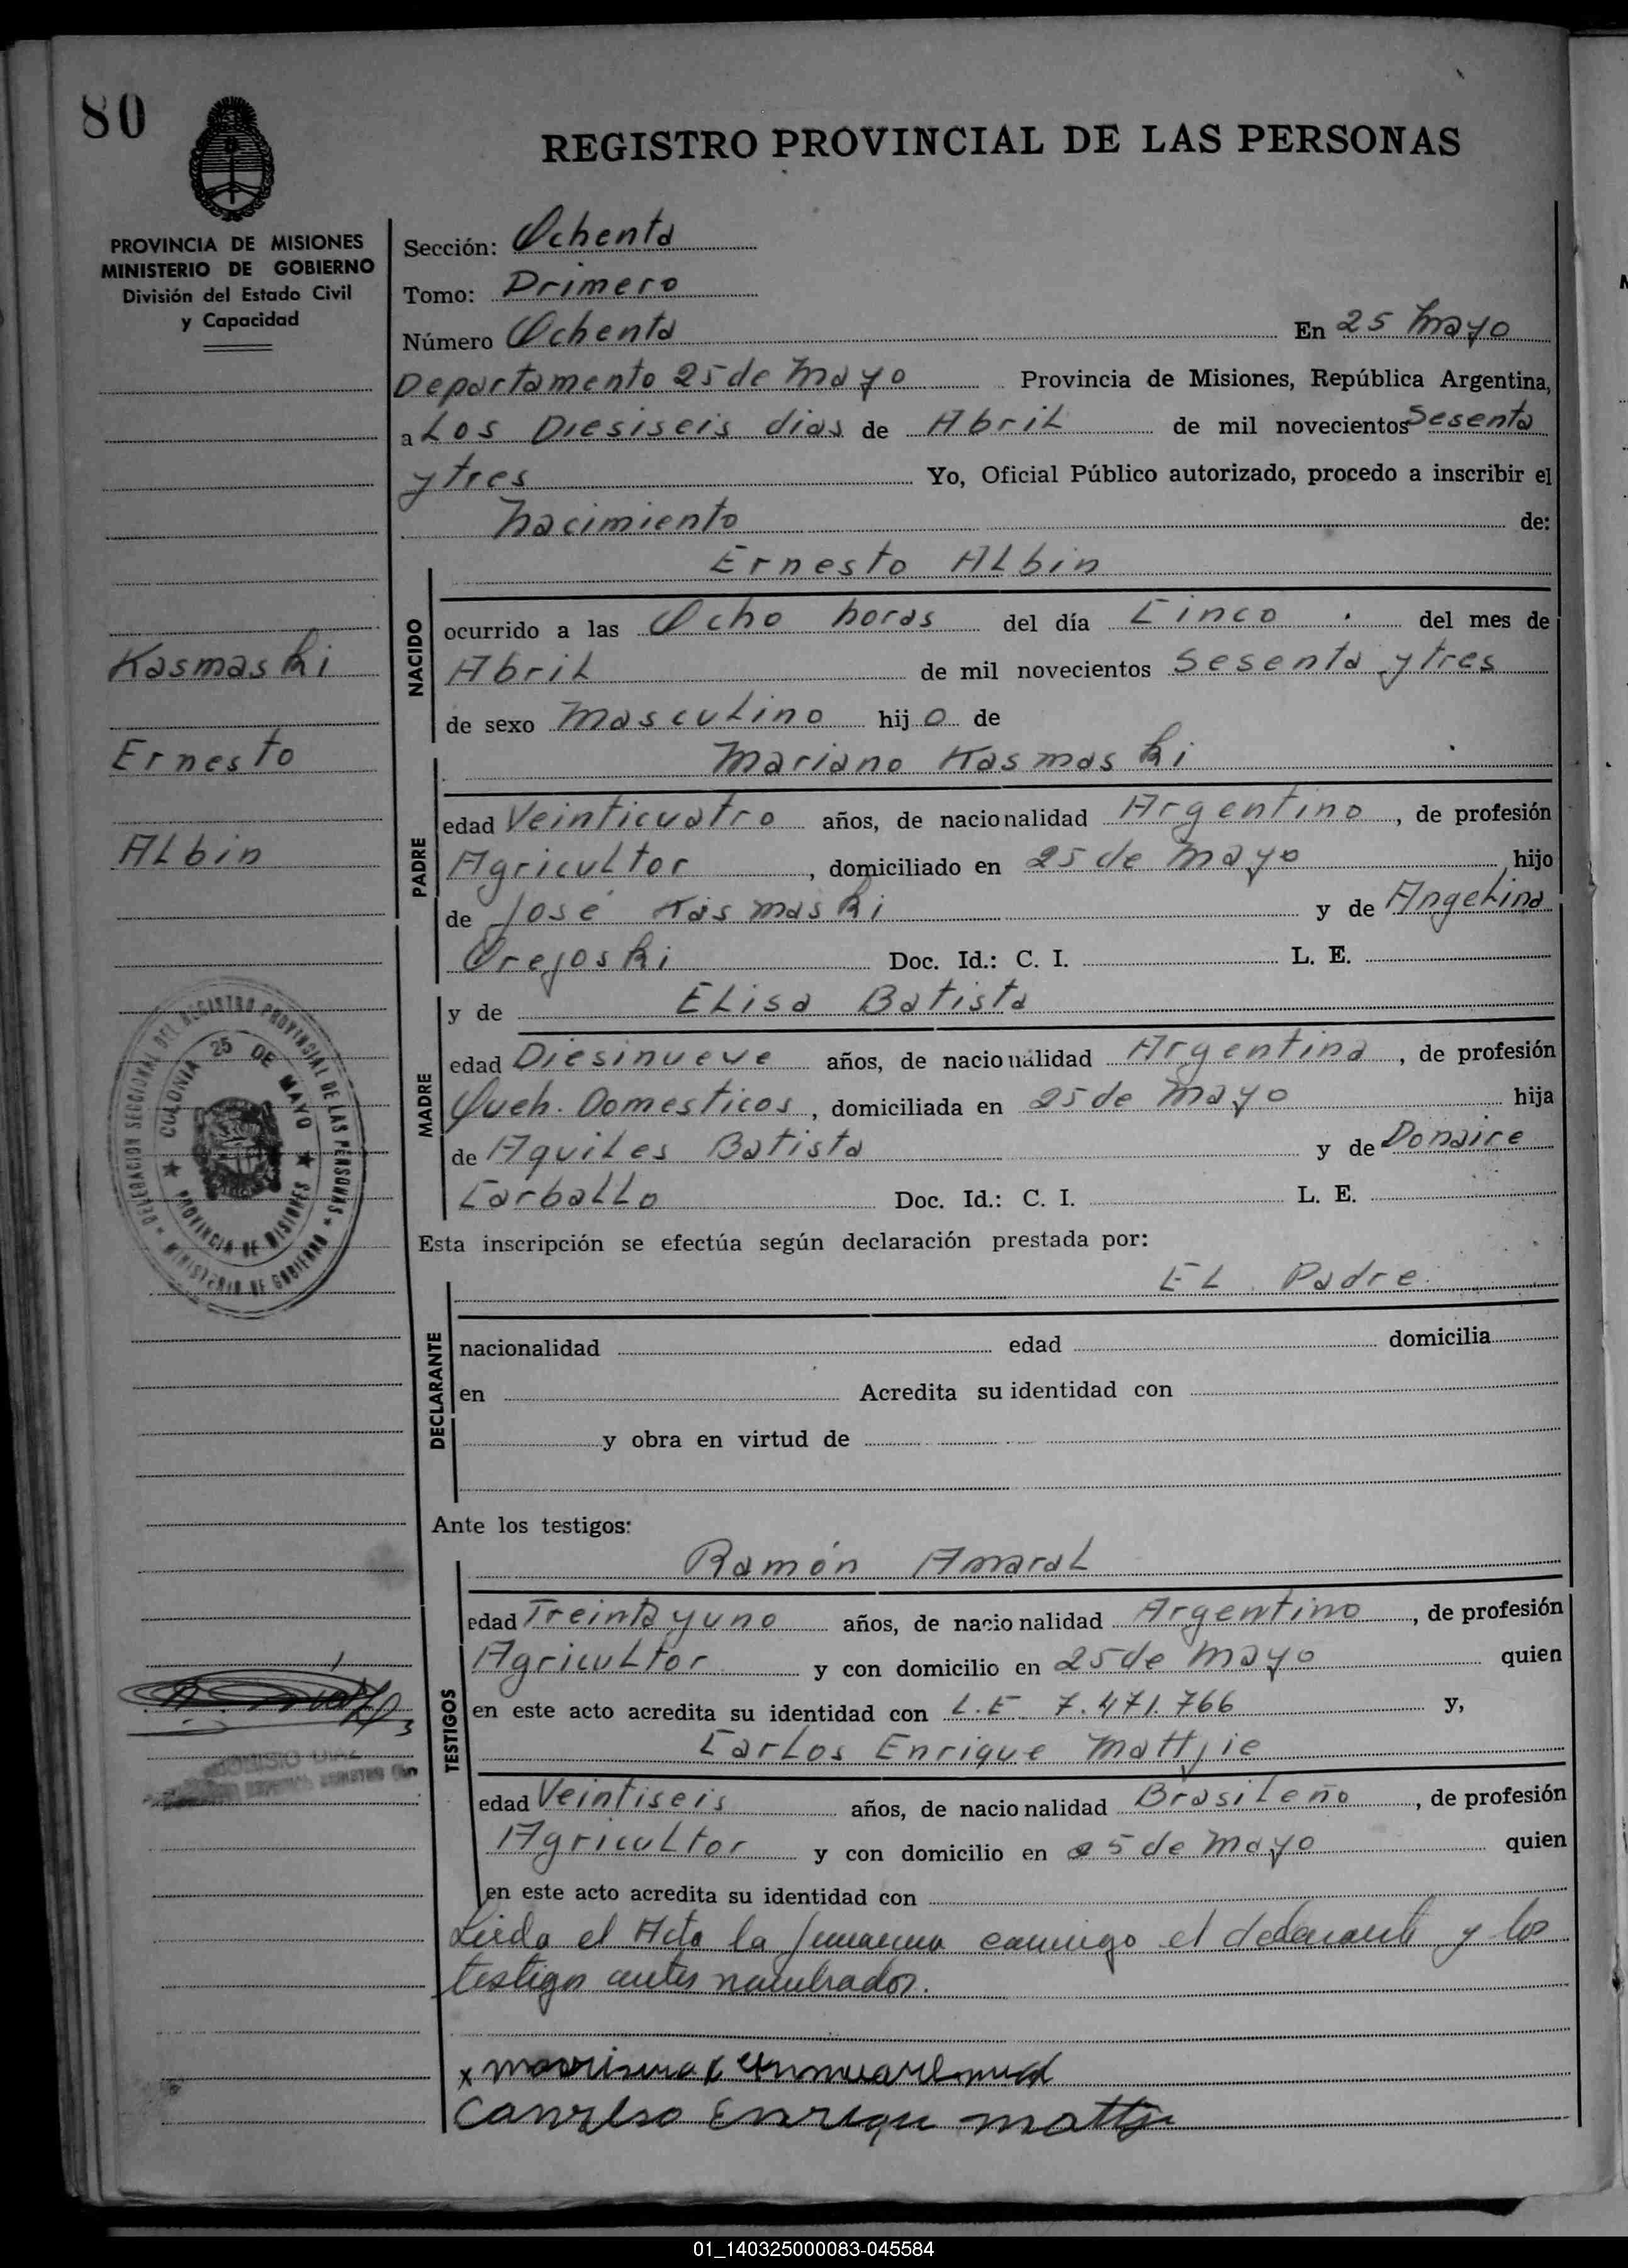 80
REGISTRO PROVINCIAL DE LAS PERSONAS
PROVINCIA DE MISIONES
MINISTERIO DE GOBIERNO
División del Estado Civil
y Capacidad
Sección: Ochenta
Tomo: Primero
Número Ochenta En 25 Mayo
Departamento 25 de Mayo Provincia de Misiones, República Argentina,
a Los Diesiseis dias de Abril de mil novecientos Sesenta
y tres Yo, Oficial Público autorizado, procedo a inscribir el
Nacimiento de:
Ernesto Albin
NACIDO
ocurrido a las Ocho horas del día Cinco del mes de
Abril de mil novecientos Sesenta y tres
de sexo Masculino hijo de
Kasmaski
Ernesto
Albin
Mariano Kasmaski
PADRE
edad Veinticuatro años, de nacionalidad Argentino, de profesión
Agricultor, domiciliado en 25 de Mayo hijo
de José Kasmaski y de Angelina
Orejoski Doc. Id.: C. I. L. E.
y de Elisa Batista
MADRE
edad Diesinueve años, de nacionalidad Argentina, de profesión
Queh. Domesticos, domiciliada en 25 de Mayo hija
de Aquiles Batista y de Donaire
Carballo Doc. Id.: C. I. L. E.
DELEGACION SECCIONAL DEL REGISTRO PROVINCIAL DE LAS PERSONAS
MINISTERIO DE GOBIERNO
COLONIA 25 DE MAYO
PROVINCIA DE MISIONES
Esta inscripción se efectúa según declaración prestada por:
El Padre
DECLARANTE
nacionalidad edad domicilia
en Acredita su identidad con
y obra en virtud de
Ante los testigos:
Ramón Amaral
TESTIGOS
edad Treinta y uno años, de nacionalidad Argentino, de profesión
Agricultor y con domicilio en 25 de Mayo quien
en este acto acredita su identidad con L.E. 7.471.766 y,
Carlos Enrique Mattjie
edad Veintiseis años, de nacionalidad Brasileño, de profesión
Agricultor y con domicilio en 25 de Mayo quien
en este acto acredita su identidad con
Leida el Acta la conmigo el declarante y los
testigos antes nombrados.
Enrique
01_140325000083-045584